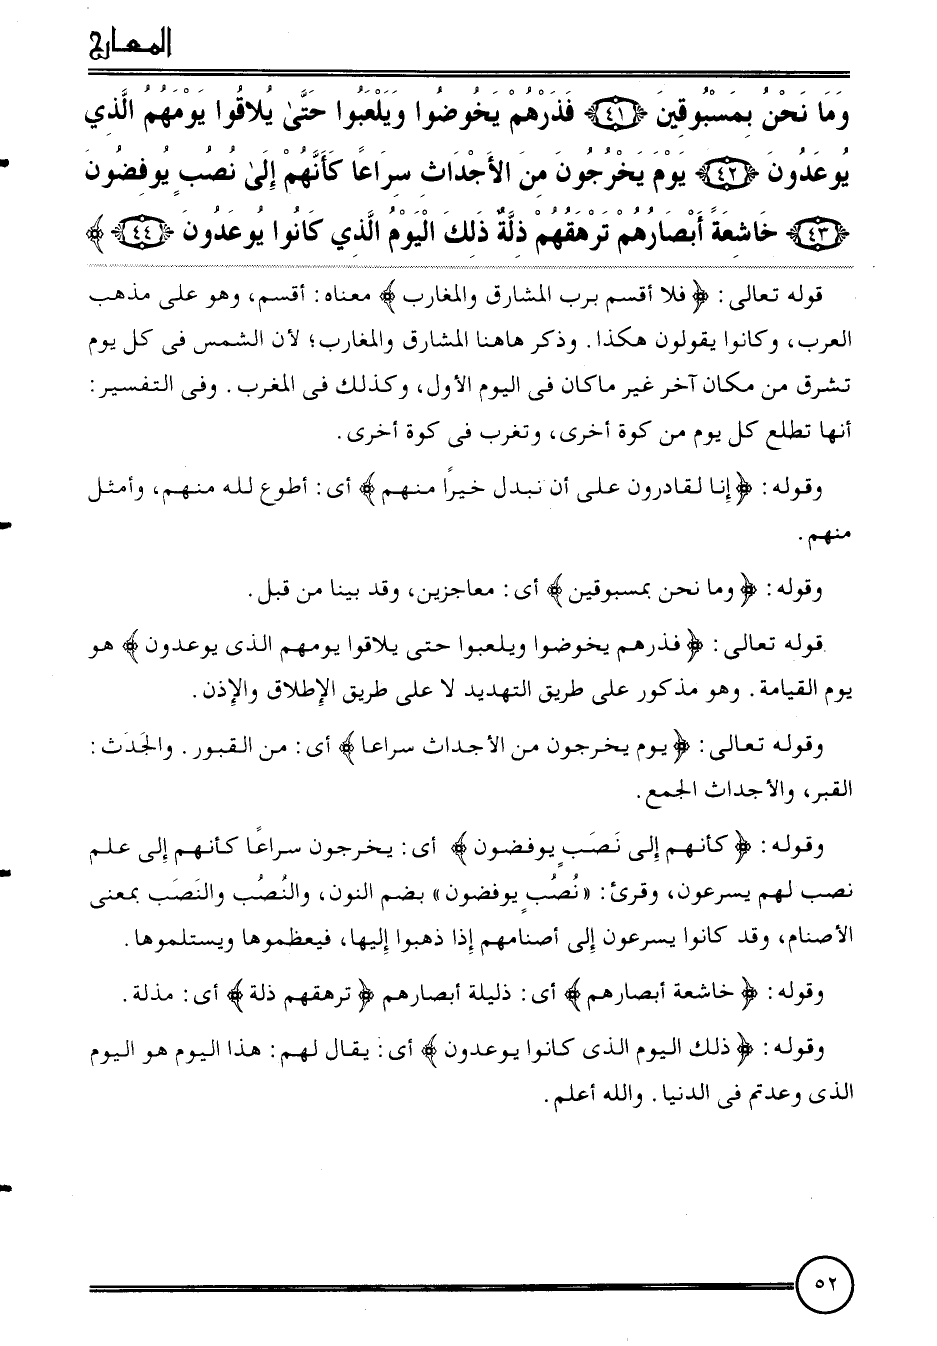 المعارج
وَمَا نَحْنُ بِمَسْبُوقِينَ ﴿٤١﴾ فَذَرْهُمْ يَخُوضُوا وَيَلْعَبُوا حَتَّىٰ يُلَاقُوا يَوْمَهُمُ الَّذِي
يُوعَدُونَ ﴿٤٢﴾ يَوْمَ يَخْرُجُونَ مِنَ الأَجْدَاثِ سِرَاعًا كَأَنَّهُمْ إِلَىٰ نُصُبٍ يُوفِضُونَ
﴿٤٣﴾ خَاشِعَةً أَبْصَارُهُمْ تَرْهَقُهُمْ ذِلَّةٌ ذَلِكَ الْيَوْمُ الَّذِي كَانُوا يُوعَدُونَ ﴿٤٤﴾ ﴾
قوله تعالى : ﴿ فلا أقسم برب المشارق والمغارب ﴾ معناه : أقسم، وهو على مذهب
العرب، وكانوا يقولون هكذا . وذكر هاهنا المشارق والمغارب؛ لأن الشمس فى كل يوم
تشرق من مكان آخر غير ماكان فى اليوم الأول، وكذلك فى المغرب . وفى التفسير :
أنها تطلع كل يوم من كوة أخرى، وتغرب فى كوة أخرى.
وقوله : ﴿ إنا لقادرون على أن نبدل خيراً منهم ﴾ أى : أطوع لله منهم، وأمثل
منهم .
وقوله : ﴿ وما نحن بمسبوقين ﴾ أى : معاجزين، وقد بينا من قبل.
قوله تعالى : ﴿ فذرهم يخوضوا ويلعبوا حتى يلاقوا يومهم الذى يوعدون ﴾ هو
يوم القيامة . وهو مذكور على طريق التهديد لا على طريق الإطلاق والإذن .
وقوله تعالى : ﴿ يوم يخرجون من الأجداث سراعا ﴾ أى : من القبور . والجَدَث :
القبر، والأجداث الجمع .
وقوله : ﴿ كأنهم إلى نَصَبٍ يوفضون ﴾ أى : يخرجون سراعًا كأنهم إلى علم
نصب لهم يسرعون، وقرئ : « نُصُبٍ يوفضون » بضم النون، والنُصُب والنَصَب بمعنى
الأصنام، وقد كانوا يسرعون إلى أصنامهم إذا ذهبوا إليها، فيعظموها ويستلموها .
وقوله : ﴿ خاشعة أبصارهم ﴾ أى : ذليلة أبصارهم ﴿ ترهقهم ذلة ﴾ أى : مذلة .
وقوله : ﴿ ذلك اليوم الذى كانوا يوعدون ﴾ أى : يقال لهم : هذا اليوم هو اليوم
الذى وعدتم فى الدنيا . والله أعلم .
٥٢